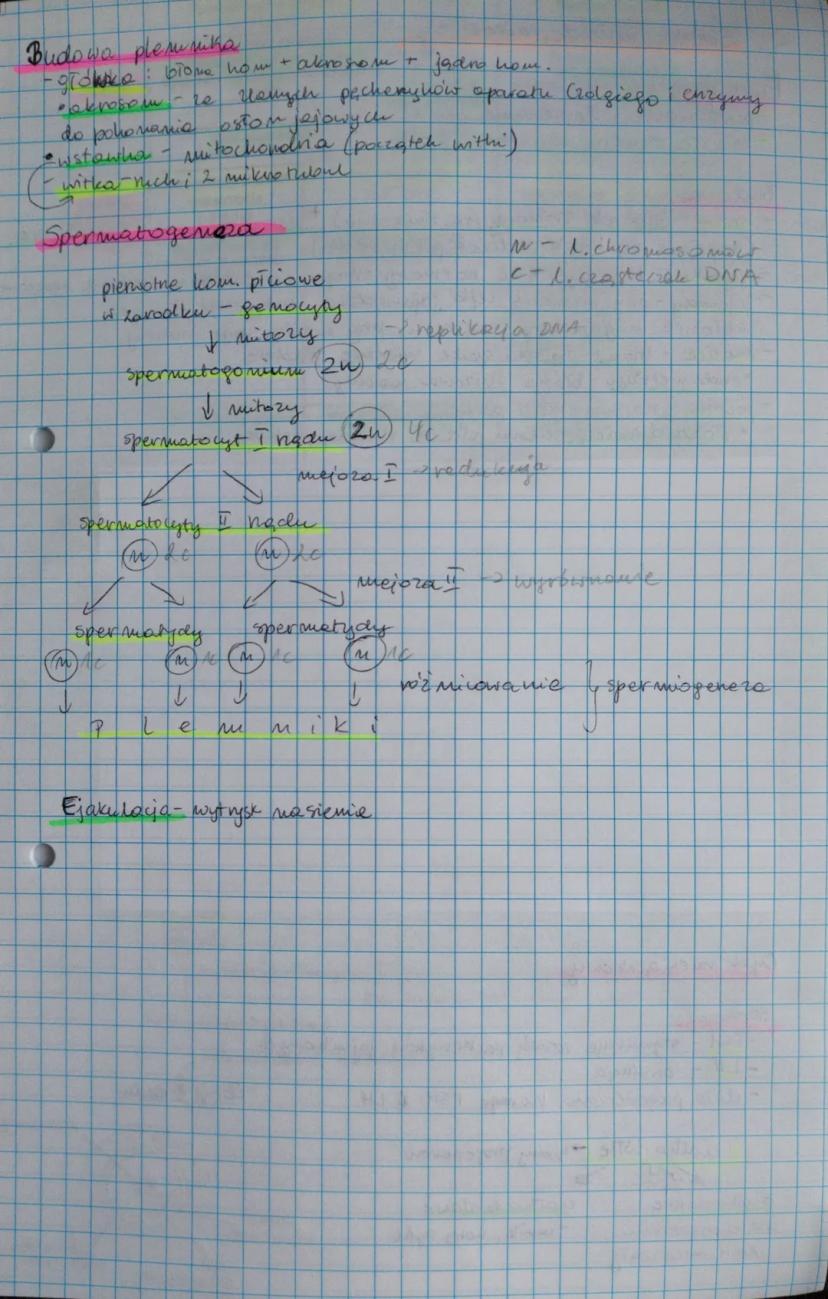 Budowa plemnika
- główka: błona kom + akrosom + jądro kom.
• akrosom - ze zlanych pęcherzyków aparatu Golgiego i enzymy
do pokonania osłon jajowych
• wstawka - mitochondria (początek witki)
- witka - ruch i 2 mikrotubul
Spermatogeneza
n - l. chromosomów
c - l. cząsteczek DNA
pierwotne kom. płciowe
w zarodku - genocyty
↓ mitozy → replikacja DNA
spermatogonium 2n 2c
↓ mitozy
spermatocyt I rzędu 2n 4c
mejoza I → redukcja
spermatocyty II rzędu
n 2c n 2c
mejoza II → wyrównanie
spermatydy spermatydy
n 1c n 1c n 1c n 1c
różnicowanie } spermiogeneza
P l e m n i k i
Ejakulacja - wytrysk nasienia